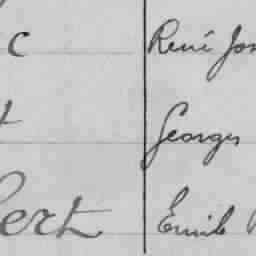 c René Jos
t Georges
bert Emile